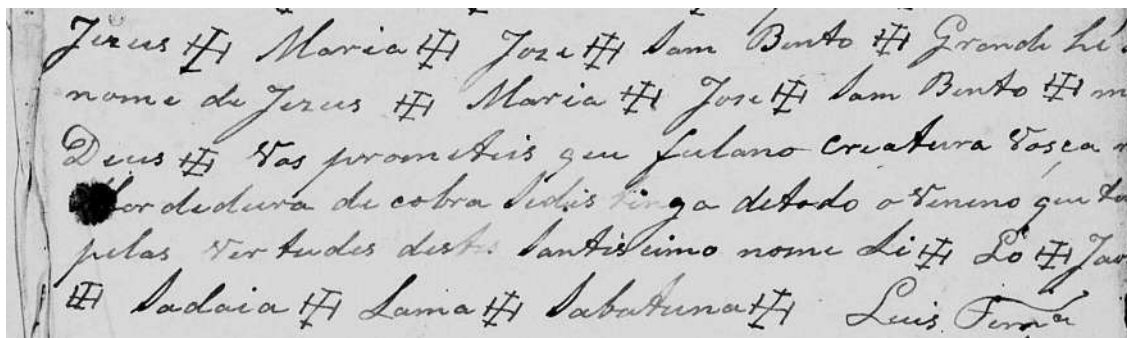 Jezus ☩ Maria ☩ Joze ☩ Sam Bento ☩ Grande hé
nome de Jezus ☩ Maria ☩ Joze ☩ Sam Bento ☩ m
Deus ☩ Vos prometeis que fulano creatura Vosca
Mordedura de cobra Sedis tinga detodo o Veneno que
pelas Vertudes deste Santissimo nome Li ☩ Lo ☩ Jav
☩ Sadaia ☩ Lama ☩ Sabatuna ☩ Luis Fernª